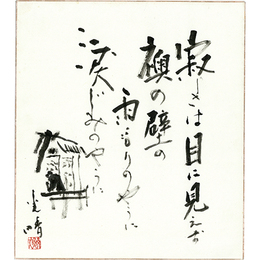 寂しさは目に見えず
襖の壁の
雨もりのやうに
涙じみのやうに